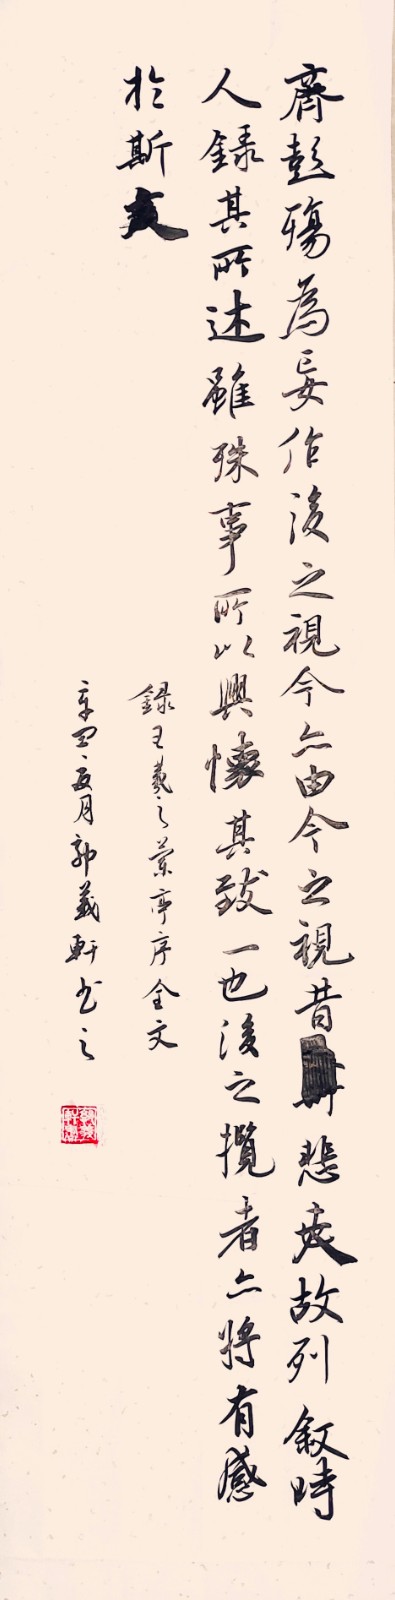 齊彭殤為妄作後之視今亦由今之視昔悲夫故列叙時
人錄其所述雖殊事所以興懷其致一也後之攬者亦將有感
於斯文
錄王羲之蘭亭序全文
辛丑年五月郭義軒书之